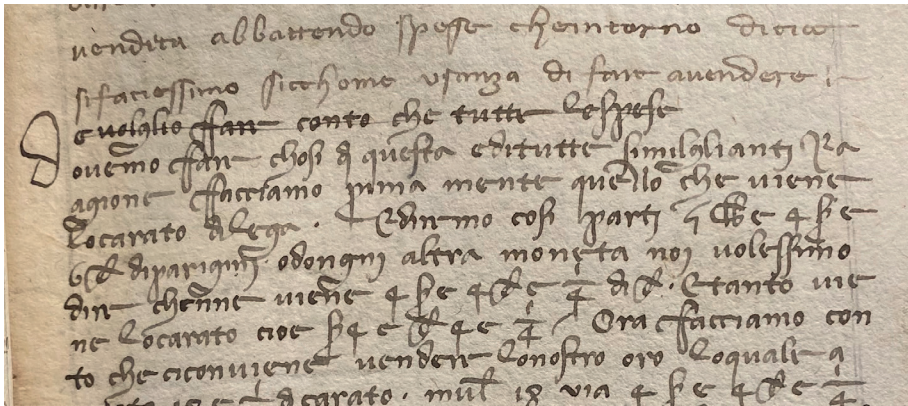 vendita abbattendo spesse che intorno dicio
sifaciessimo sicchome usanza di fare avendere
e volglio ffare conto che tutte lespese
ovemo ffare chosi d questa editutte similglianti Ra
agione ffacciamo prima mente quello che viene
Locarato dLega · Ediremo cosi parti e 4 ß e
6 dipariginj odongni altra moneta noi volessimo
dire chenne viene 4 ß e 4 e 1/4 di · Etanto vie
ne Locarato cioe ß 4 e 4 e 1/4 Ora ffacciamo con
to che ciconviene vendere Lonostro oro Loquale a
carato · mul 18 via 4 ß e 4 e